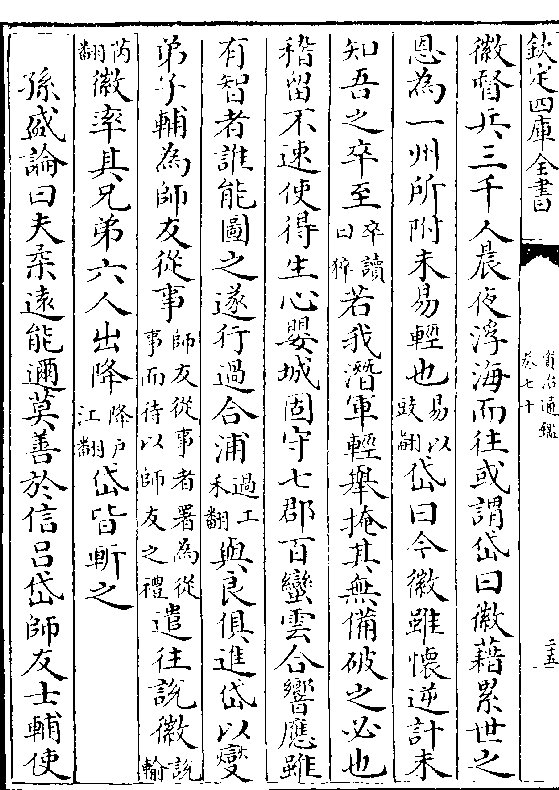 欽定四庫全書
資治通鑑
卷七十
二五
徽督兵三千人晨夜浮海而往或謂岱曰徽藉累世之
恩為一州所附未易輕也易以豉翻岱曰今徽雖懷逆計未
知吾之卒至卒讀曰猝若我潛軍輕舉掩其無備破之必也
稽留不速使得生心嬰城固守七郡百蠻雲合響應雖
有智者誰能圖之遂行過合浦過工禾翻與良俱進岱以燮
弟子輔為師友從事師友從事者署為從事而待以師友之禮遣往說徽說輸
芮翻徽率其兄弟六人出降降户江翻岱皆斬之
孫盛論曰夫柔遠能邇莫善於信吕岱師友士輔使